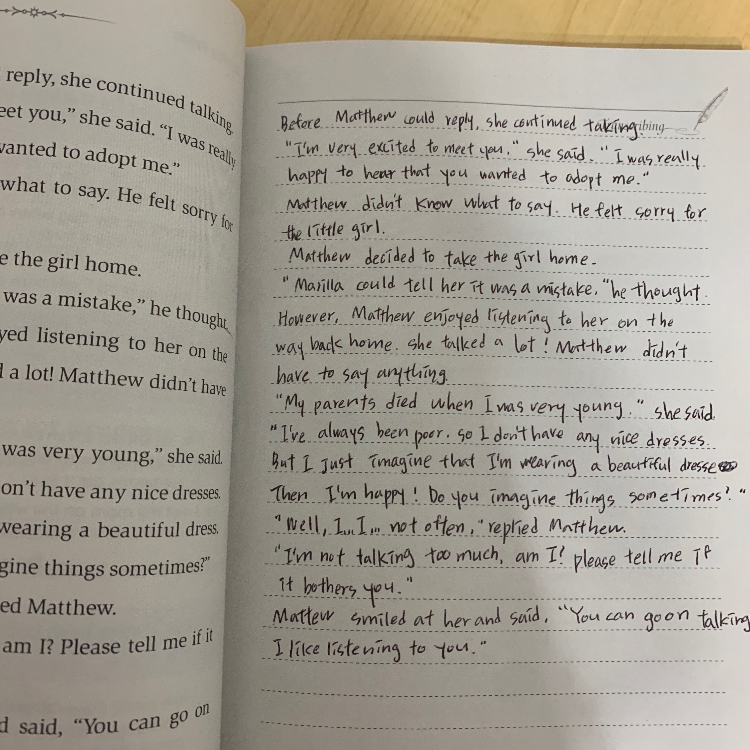 reply, she continued talking.
eet you," she said. "I was really
wanted to adopt me."
what to say. He felt sorry for
e the girl home.
was a mistake," he thought.
yed listening to her on the
d a lot! Matthew didn't have
was very young," she said.
on't have any nice dresses.
wearing a beautiful dress.
gine things sometimes?"
ed Matthew.
am I? Please tell me if it
d said, "You can go on
Before Matthew could reply, she continued taking ibing
"I'm very excited to meet you." she said. "I was really
happy to hear that you wanted to adopt me."
Matthew didn't know what to say. He felt sorry for
the little girl.
Matthew decided to take the girl home.
"Marilla could tell her it was a mistake. "he thought.
However, Matthew enjoyed listening to her on the
way back home. she talked a lot! Matthew didn't
have to say anything
"My parents died when I was very young." she said
"I've always been poor. so I don't have any nice dresses.
But I just imagine that I'm wearing a beautiful dresse
Then I'm happy! Do you imagine things sometimes?"
"Well, I... I... not often," replied Matthew.
"I'm not talking too much, am I? please tell me if
it bothers you."
Mattew smiled at her and said, "You can go on talking
I like listening to you."